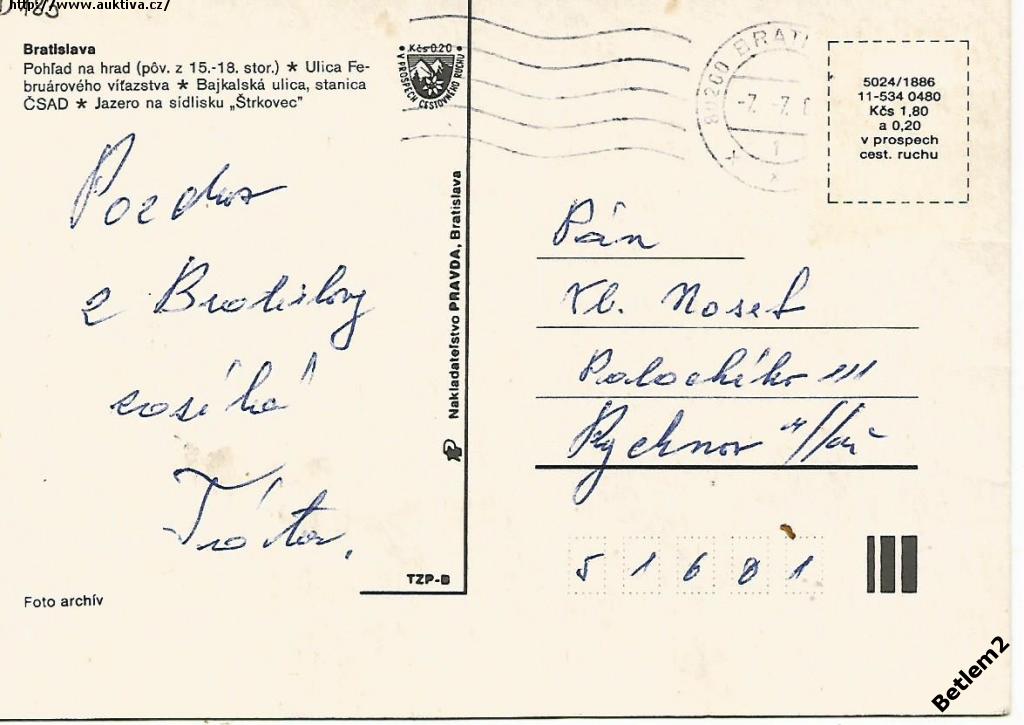 http://www.auktiva.cz/
Bratislava
Pohľad na hrad (pôv. z 15.-18. stor.) ★ Ulica Fe-
bruárového víťazstva ★ Bajkalská ulica, stanica
ČSAD ★ Jazero na sídlisku „Štrkovec”
Kčs 0.20
V PROSPECH CESTOVNÉHO RUCHU
80200 BRATI
-7. -7.
1
5024/1886
11-534 0480
Kčs 1,80
a 0,20
v prospech
cest. ruchu
Pozdrav
z Bratislavy
zasílá
Nakladateľstvo PRAVDA, Bratislava
Pán
Vl. Nosek
Palackého
Rychnov n/Kn
51601
TZP-B
Foto archív
Betlem2